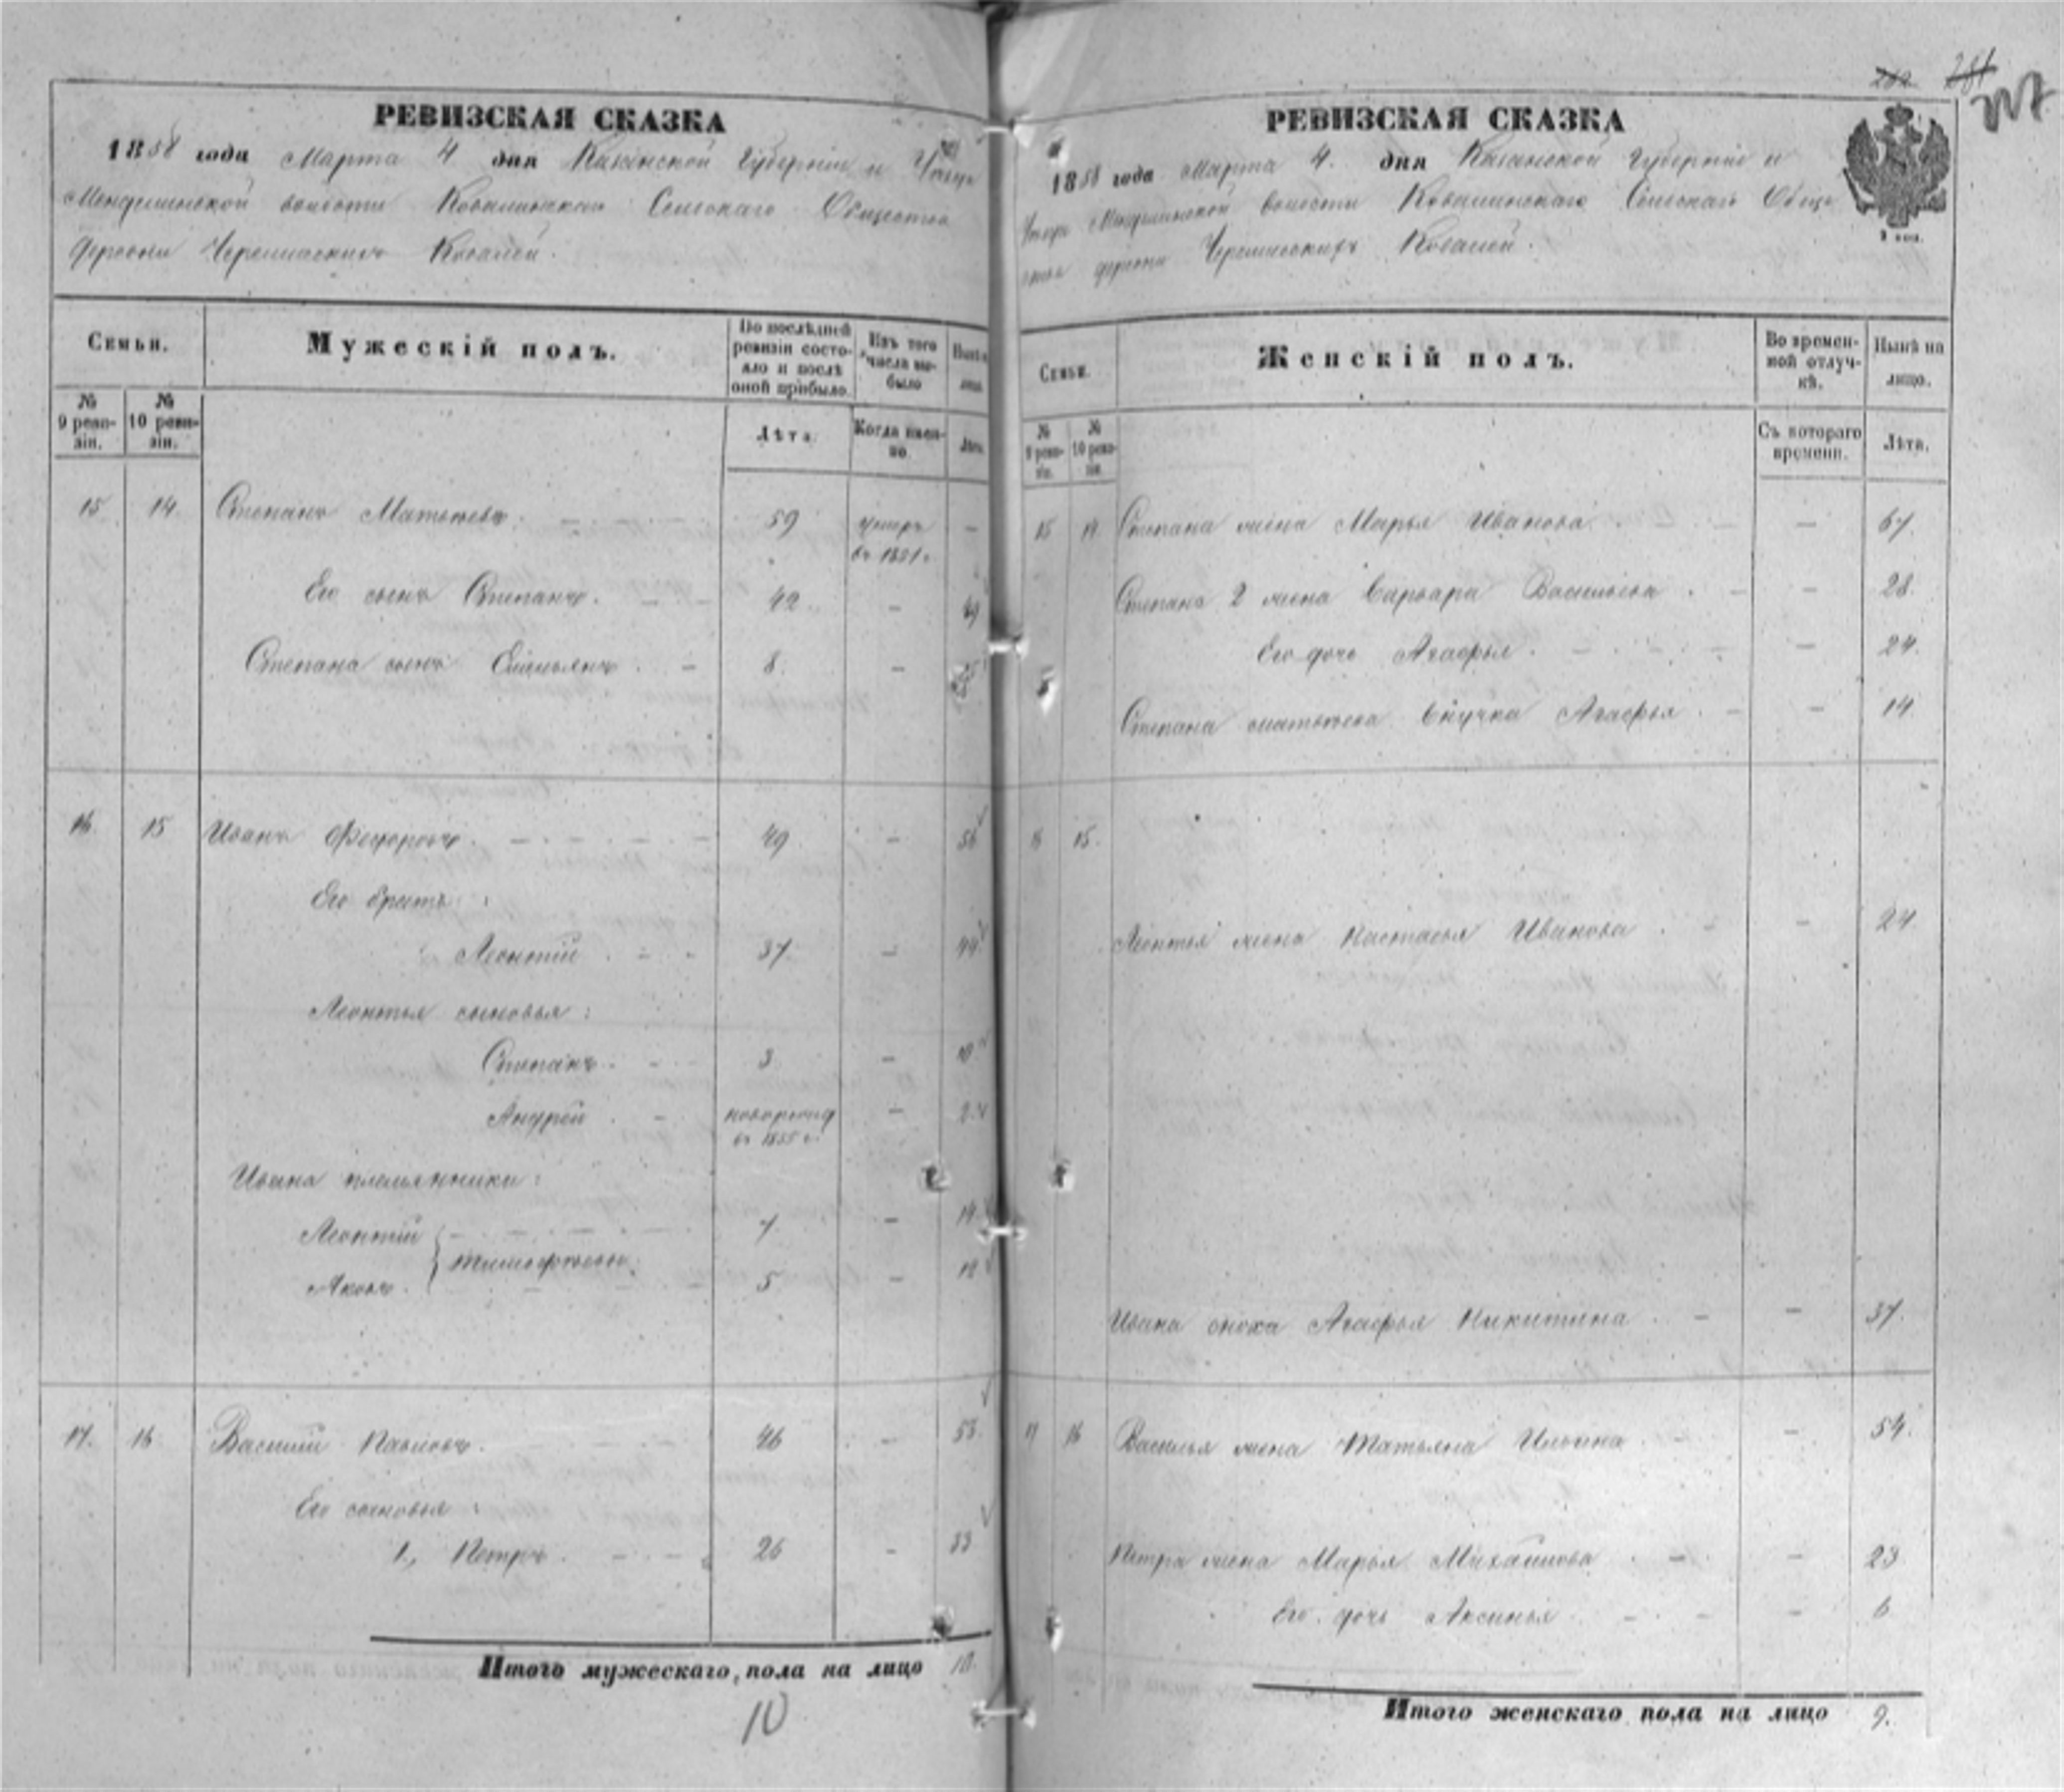 РЕВИЗСКАЯ СКАЗКА
1858 года Марта 4 дня Казанской Губерніи и
волости Ковалинскаго Сельскаго Общества
деревни Черемисскихъ Ковалей.
Семьи.
Мужескій полъ.
По послѣдней ревизіи состояло и послѣ оной прибыло.
Изъ того числа выбыло
№ 9 ревизіи.
№ 10 ревизіи.
Лѣта.
Когда именно.
Лѣта.
15 14 Степанъ Матвѣевъ. 59 умеръ —
въ 1851 г.
Его сынъ Степанъ. 42 — 49
Степана сынъ Емельянъ. 8. —
16 15 Иванъ Федоровъ. 49 — 56
Его братъ:
Леонтій 37. — 44
Леонтья сыновья:
Степанъ. 3 — 10
Андрей новорожд — 2
въ 1855 г.
Ивана племянники:
Леонтій 7. — 14
Тимофѣевы.
Яковъ. 5 — 12
17. 16 Василій Павловъ. 46 — 53
Его сыновья:
1., Петръ. 26 — 33
Итого мужескаго пола на лицо 10.
10
282 281
РЕВИЗСКАЯ СКАЗКА
1858 года Марта 4. дня Казанской Губерніи и
волости Ковалинскаго Сельскаго Общес
тва деревни Черемисскихъ Ковалей.
Семьи.
Женскій полъ.
Во временной отлучкѣ.
Нынѣ на лицо.
№ 9 ревизіи.
№ 10 ревизіи.
Съ котораго времени.
Лѣта.
15 14 Степана жена Марья Иванова — 67.
Степана 2 жена Варвара Васильева — 28.
Его дочь Агафья. — 24.
Степана Матвѣева внучка Агафья — 14.
15.
Леонтья жена Настасья Иванова — 24
Ивана сноха Агафья Никитина — 37.
17 16 Василья жена Татьяна Ильина — 54.
Петра жена Марья Михайлова — 23
Его дочь Аксинья — 6
Итого женскаго пола на лицо 9.